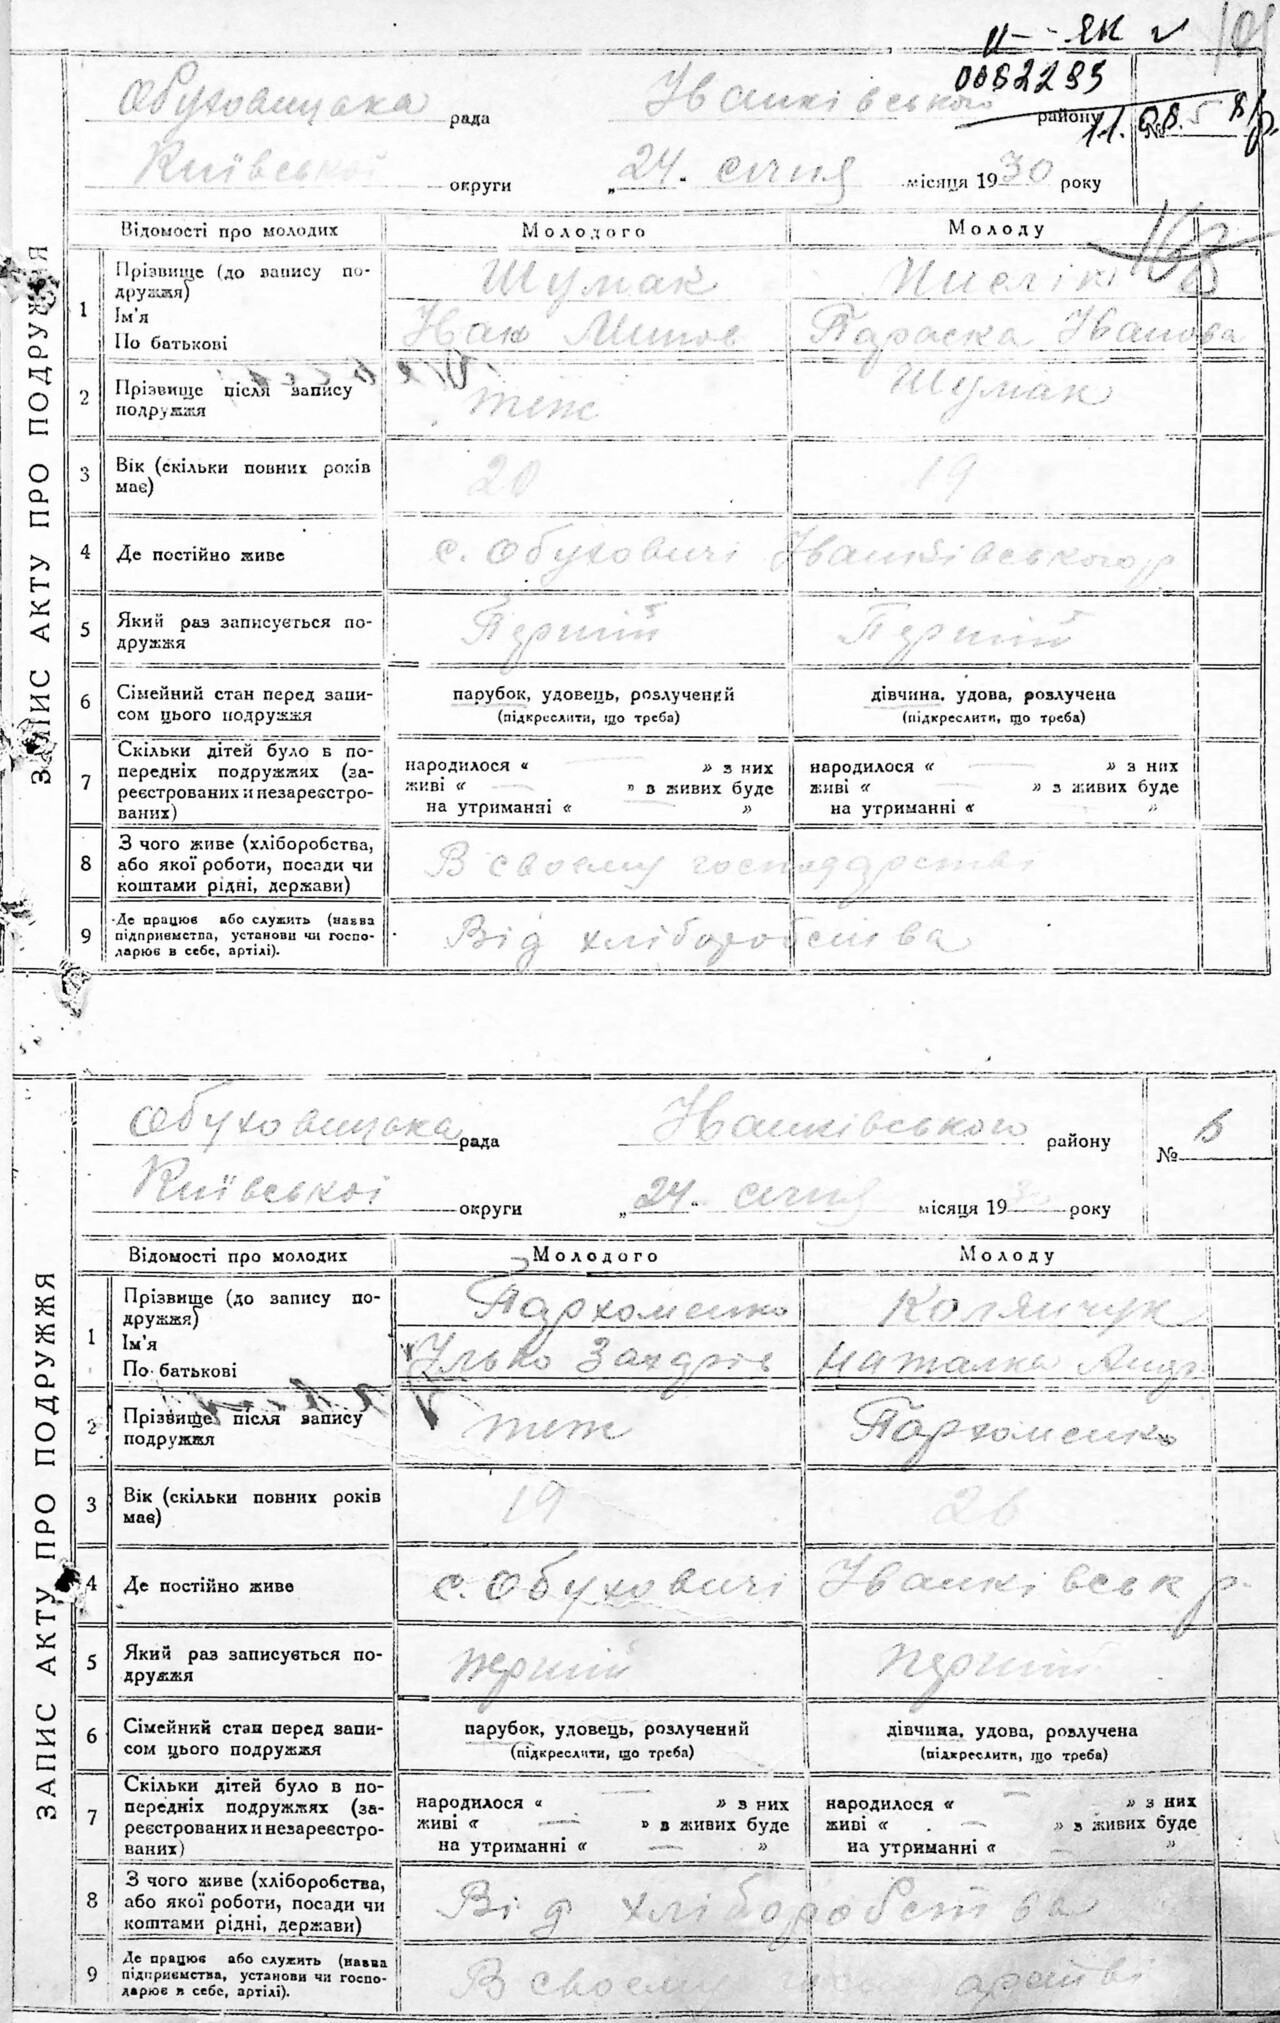 II - ЯК
0062295
11. 08. 8
Обуховицька рада Іванківського району № 5
Київської округи „24" січня місяця 1930 року
Відомості про молодих Молодого Молоду
168
ЗАПИС АКТУ ПРО ПОДРУЖЖЯ
1 Прізвище (до запису по-
дружжя) Шумак
Ім'я
По батькові Іван Параска Іванова
2 Прізвище після запису
подружжя теж Шумак
3 Вік (скільки повних років
має) 20 19
4 Де постійно живе с. Обуховичі Іванківського р
5 Який раз записується по-
дружжя Перший Перший
6 Сімейний стан перед запи-
сом цього подружжя
парубок, удовець, розлучений
(підкреслити, що треба)
дівчина, удова, розлучена
(підкреслити, що треба)
7 Скільки дітей було в по-
передніх подружжях (за-
реєстрованих и незареєстро-
ваних)
народилося « — » з них
живі « — » в живих буде
на утриманні « »
народилося « — » з них
живі « — » з живих буде
на утриманні « »
8 З чого живе (хліборобства,
або якої роботи, посади чи
коштами рідні, держави)
В своєму господарстві
9 Де працює або служить (назва
підприємства, установи чи госпо-
дарює в себе, артілі).
Від хліборобства
Обуховицька рада Іванківського району №
Київської округи „24" січня місяця 1930 року
Відомості про молодих Молодого Молоду
ЗАПИС АКТУ ПРО ПОДРУЖЖЯ
1 Прізвище (до запису по-
дружжя) Пархоменко
Ім'я
По батькові Улько Наталка Андр
2 Прізвище після запису
подружжя теж Пархоменко
3 Вік (скільки повних років
має) 19
4 Де постійно живе с. Обуховичі Іванківськ р.
5 Який раз записується по-
дружжя перший перший
6 Сімейний стан перед запи-
сом цього подружжя
парубок, удовець, розлучений
(підкреслити, що треба)
дівчина, удова, розлучена
(підкреслити, що треба)
7 Скільки дітей було в по-
передніх подружжях (за-
реєстрованих и незареєстро-
ваних)
народилося « — » з них
живі « — » в живих буде
на утриманні « — »
народилося « — » з них
живі « — » з живих буде
на утриманні « — »
8 З чого живе (хліборобства,
або якої роботи, посади чи
коштами рідні, держави)
Від хліборобства
9 Де працює або служить (назва
підприємства, установи чи госпо-
дарює в себе, артілі).
В своєму